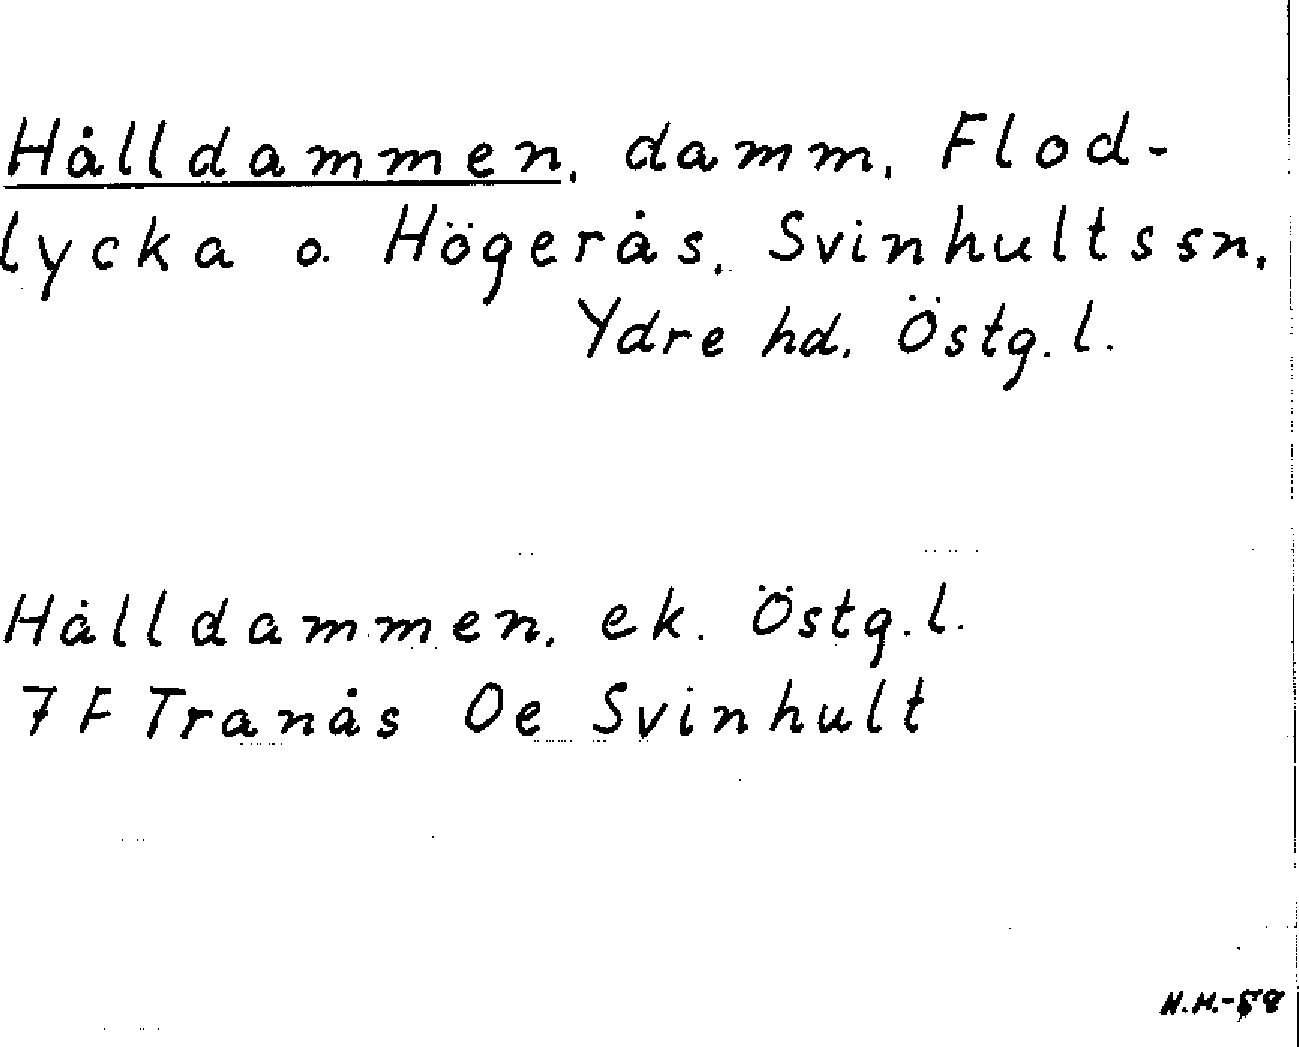 Hålldammen, damm, Flod-
lycka o. Högerås, Svinhults sn,
Ydre hd. Östg. l.
Hålldammen, ek. Östg. l.
7 F Tranås Oe Svinhult
N.H.-58